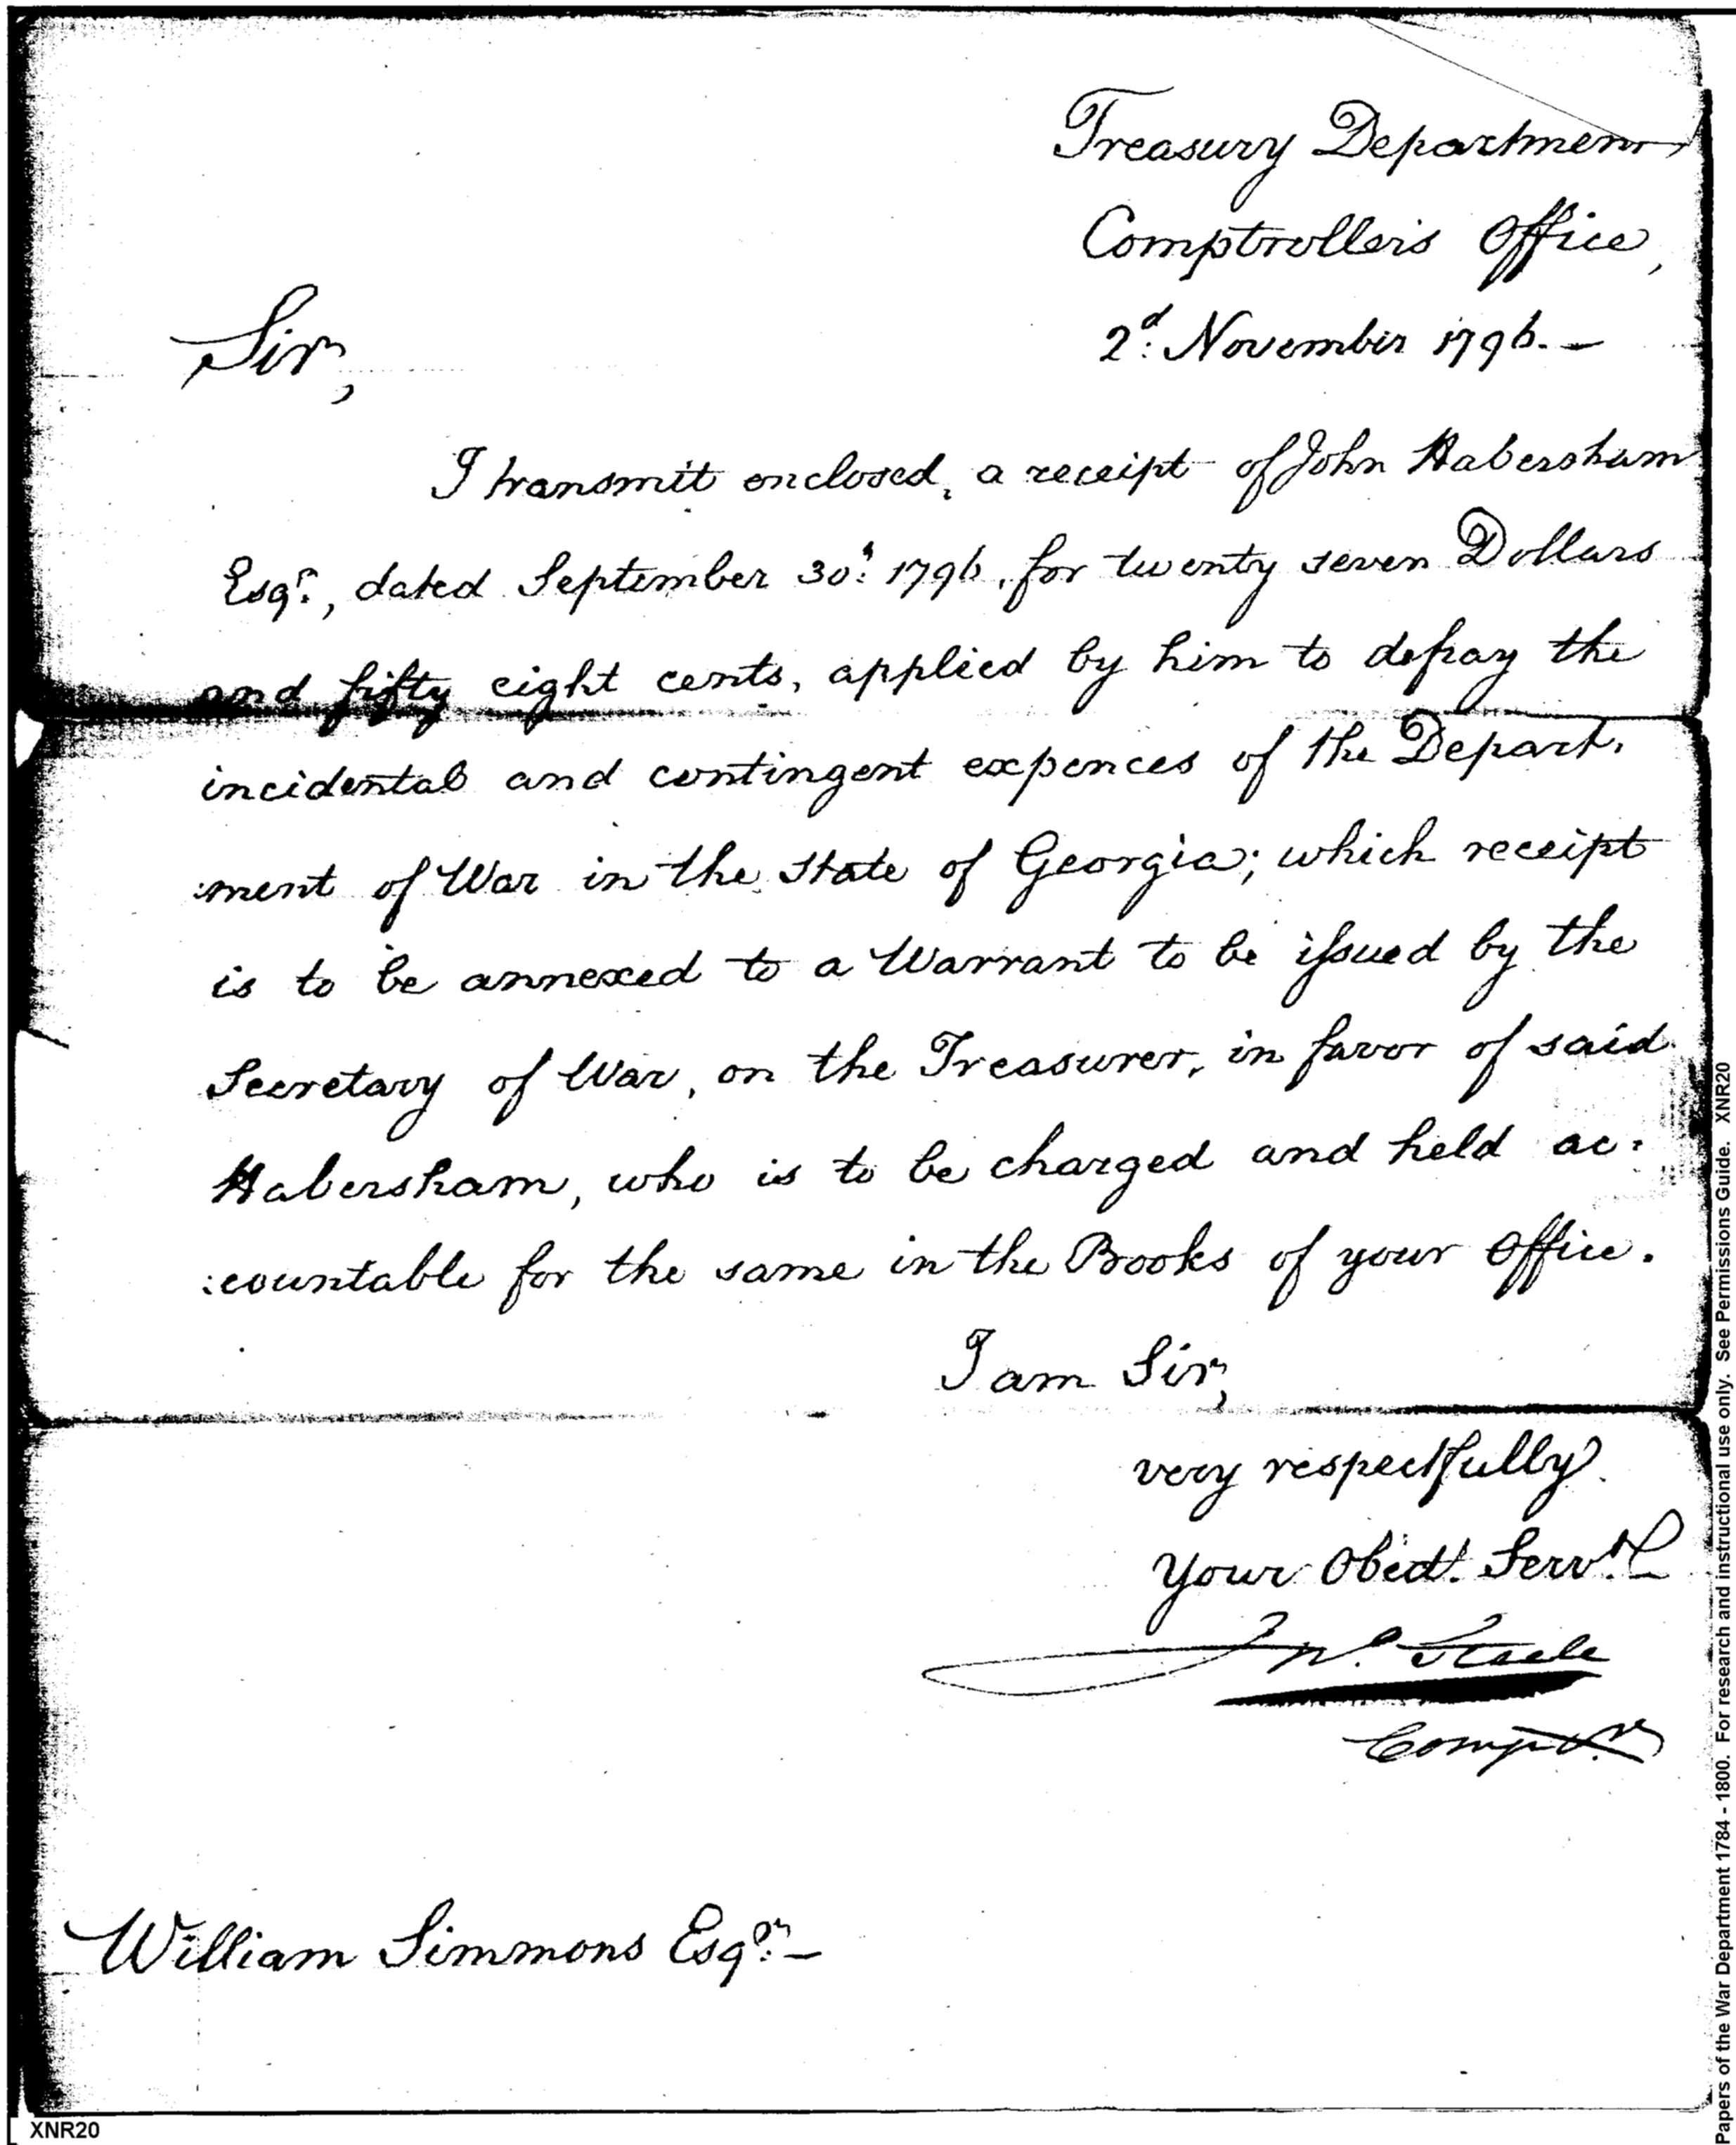 Treasury Department
Comptroller's Office,
2d. November 1796. —
Sir,
I transmit enclosed, a receipt of John Habersham
Esqr., dated September 30th. 1796, for twenty seven Dollars
and fifty eight cents, applied by him to defray the
incidental and contingent expences of the Depart.
:ment of War in the State of Georgia; which receipt
is to be annexed to a Warrant to be issued by the
Secretary of War, on the Treasurer, in favor of said
Habersham, who is to be charged and held ac:
:countable for the same in the Books of your Office.
I am Sir,
very respectfully
Your Obedt. Servt.
Jno. Steele
Comptr.
William Simmons Esqr. —
XNR20
Papers of the War Department 1784 - 1800. For research and instructional use only. See Permissions Guide. XNR20